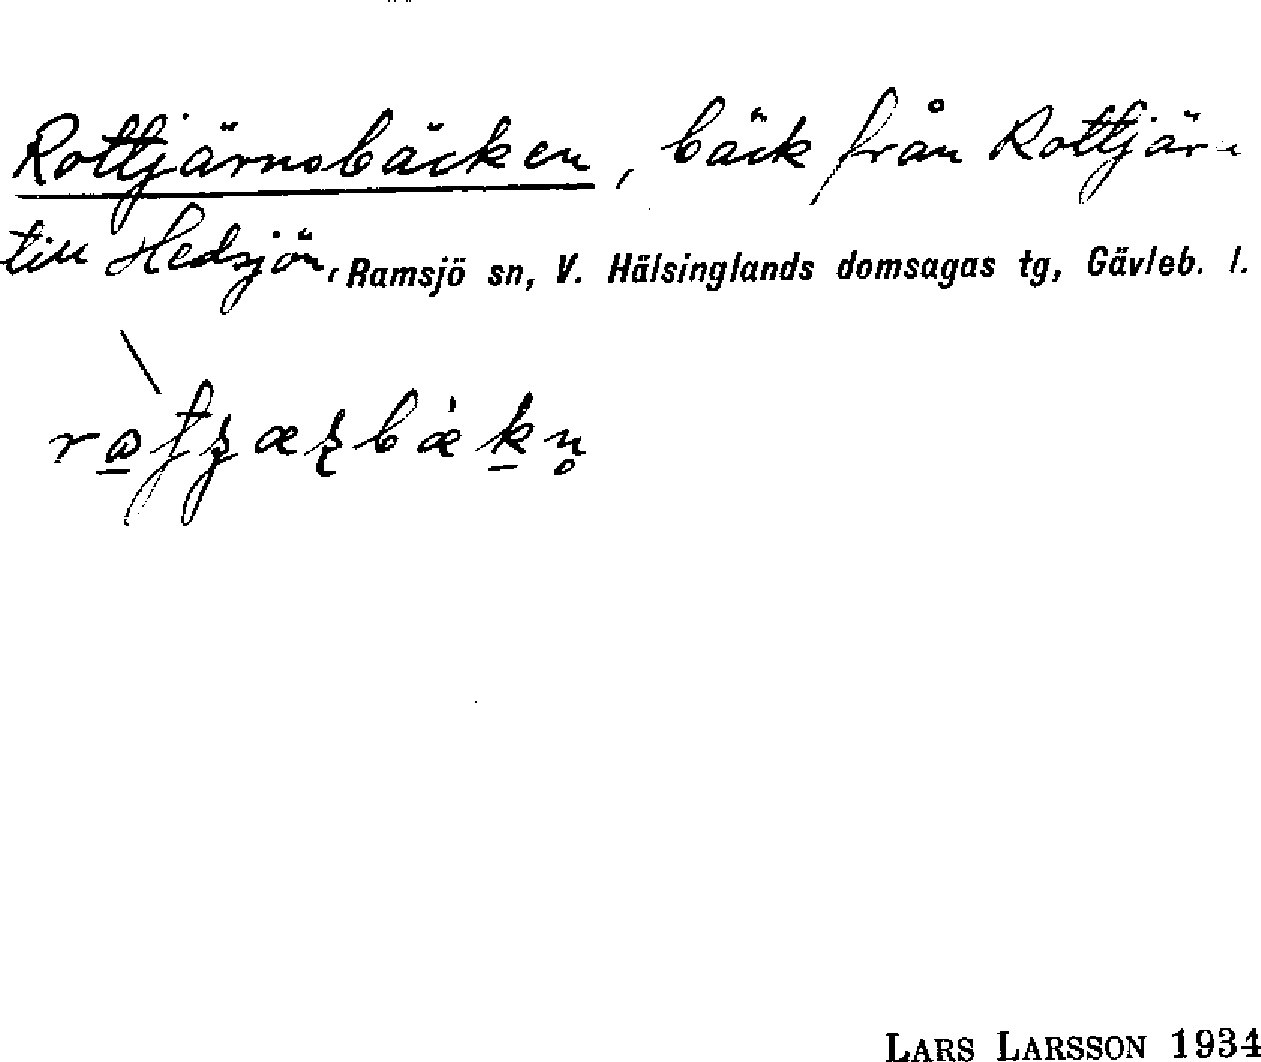 Rottjärnsbäcken, bäck från Rottjärn
till Hedsjön, Ramsjö sn, V. Hälsinglands domsagas tg, Gävleb. l.
LARS LARSSON 1934